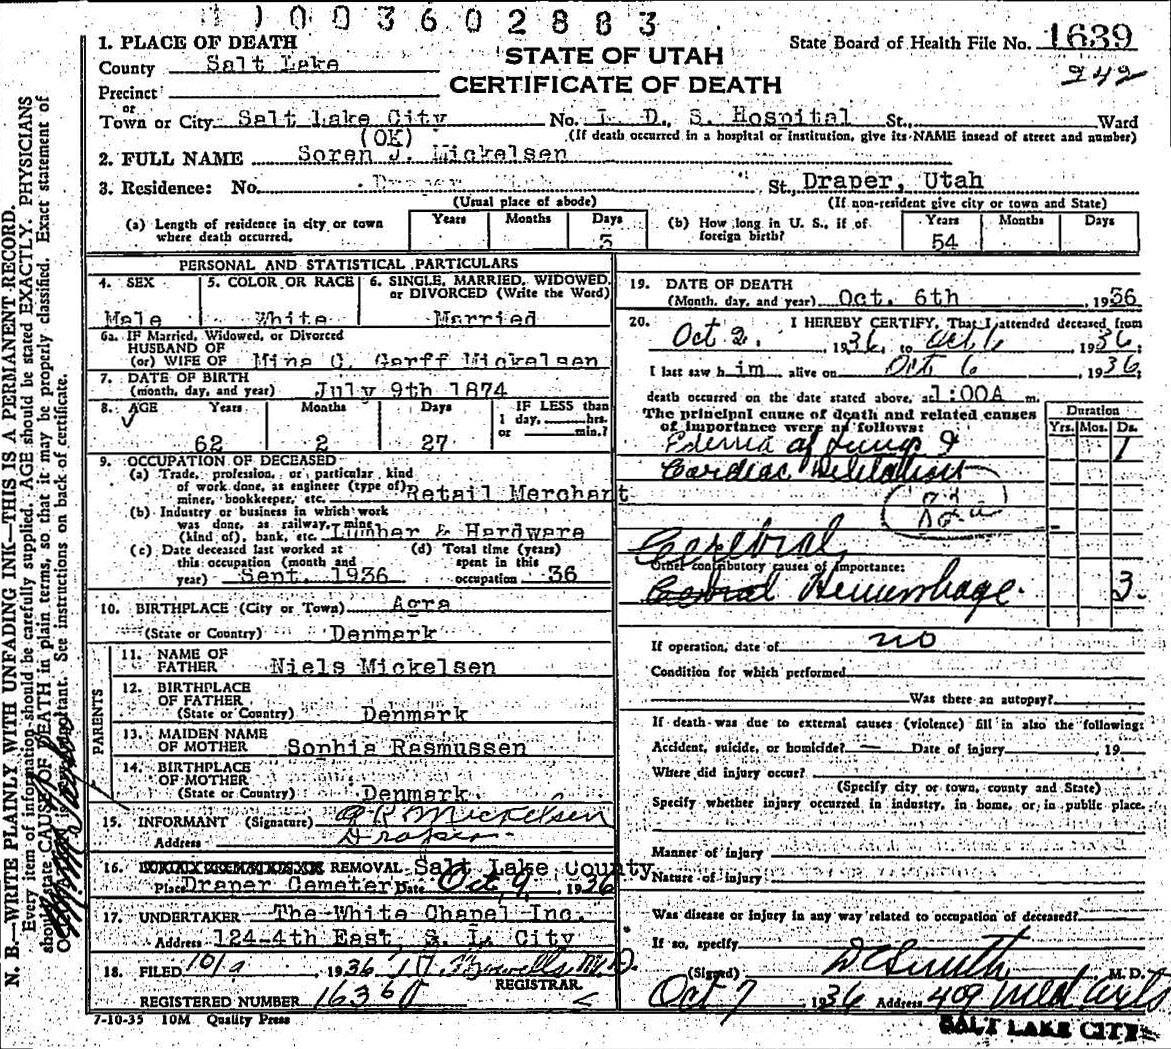 1003602883
1. PLACE OF DEATH
STATE OF UTAH
CERTIFICATE OF DEATH
State Board of Health File No. 1639
242
County Salt Lake
Precinct
or
Town or City Salt Lake City No. L. D. S. Hospital St. Ward
(OK) (If death occurred in a hospital or institution, give its NAME insead of street and number)
2. FULL NAME Soren J. Mickelsen
3. Residence: No. Draper St., Draper, Utah
(Usual place of abode) (If non-resident give city or town and State)
(a) Length of residence in city or town where death occurred. Years Months Days
(b) How long in U. S., if of foreign birth? Years 54 Months Days
PERSONAL AND STATISTICAL PARTICULARS
4. SEX 5. COLOR OR RACE 6. SINGLE, MARRIED, WIDOWED, or DIVORCED (Write the Word)
Male White Married
6a. IF Married, Widowed, or Divorced
HUSBAND OF
(or) WIFE OF Mine C. Garff Mickelsen
7. DATE OF BIRTH
(month, day, and year) July 9th 1874
8. AGE Years Months Days IF LESS than
1 day, hrs.
or min.?
62 2 27
9. OCCUPATION OF DECEASED
(a) Trade, profession, or particular kind
of work done, as engineer (type of)
miner, bookkeeper, etc. Retail Merchant
(b) Industry or business in which work
was done, as railway, mine
(kind of), bank, etc. Lumber & Hardware
(c) Date deceased last worked at
this occupation (month and
year) Sept. 1936
(d) Total time (years)
spent in this
occupation 36
10. BIRTHPLACE (City or Town) Agra
(State or Country) Denmark
PARENTS
11. NAME OF
FATHER Niels Mickelsen
12. BIRTHPLACE
OF FATHER
(State or Country) Denmark
13. MAIDEN NAME
OF MOTHER Sophia Rasmussen
14. BIRTHPLACE
OF MOTHER
(State or Country) Denmark
15. INFORMANT (Signature) Mickelsen
Address Draper
16. REMOVAL Salt Lake County
Place Draper Cemetery Date Oct 9, 1936
17. UNDERTAKER The White Chapel Inc.
Address 124-4th East, S. L. City
18. FILED 10/9, 1936 M.D.
REGISTRAR.
REGISTERED NUMBER 1636
7-10-35 10M Quality Press
19. DATE OF DEATH
(Month, day, and year) Oct. 6th, 1936
20. I HEREBY CERTIFY, That I attended deceased from
Oct 2, 1936, to Oct 6, 1936,
I last saw h im alive on Oct 6, 1936,
death occurred on the date stated above, at 1:00A m.
The principal cause of death and related causes
of importance were as follows:
Duration
Yrs. Mos. Ds.
Edema of Lungs & 1
Cardiac Dilatation
Cerebral
Other contributory causes of importance:
Hemorrhage. 3.
If operation, date of no
Condition for which performed
Was there an autopsy?
If death was due to external causes (violence) fill in also the following:
Accident, suicide, or homicide? — Date of injury, 19
Where did injury occur?
(Specify city or town, county and State)
Specify whether injury occurred in industry, in home, or in public place.
Manner of injury
Nature of injury
Was disease or injury in any way related to occupation of deceased?
If so, specify
(Signed) M. D.
Oct 7 1936 Address 409 Med Arts
SALT LAKE CITY
N. B.—WRITE PLAINLY WITH UNFADING INK—THIS IS A PERMANENT RECORD.
Every item of information should be carefully supplied. AGE should be stated EXACTLY. PHYSICIANS
should state CAUSE OF DEATH in plain terms, so that it may be properly classified. Exact statement of
OCCUPATION is very important. See instructions on back of certificate.